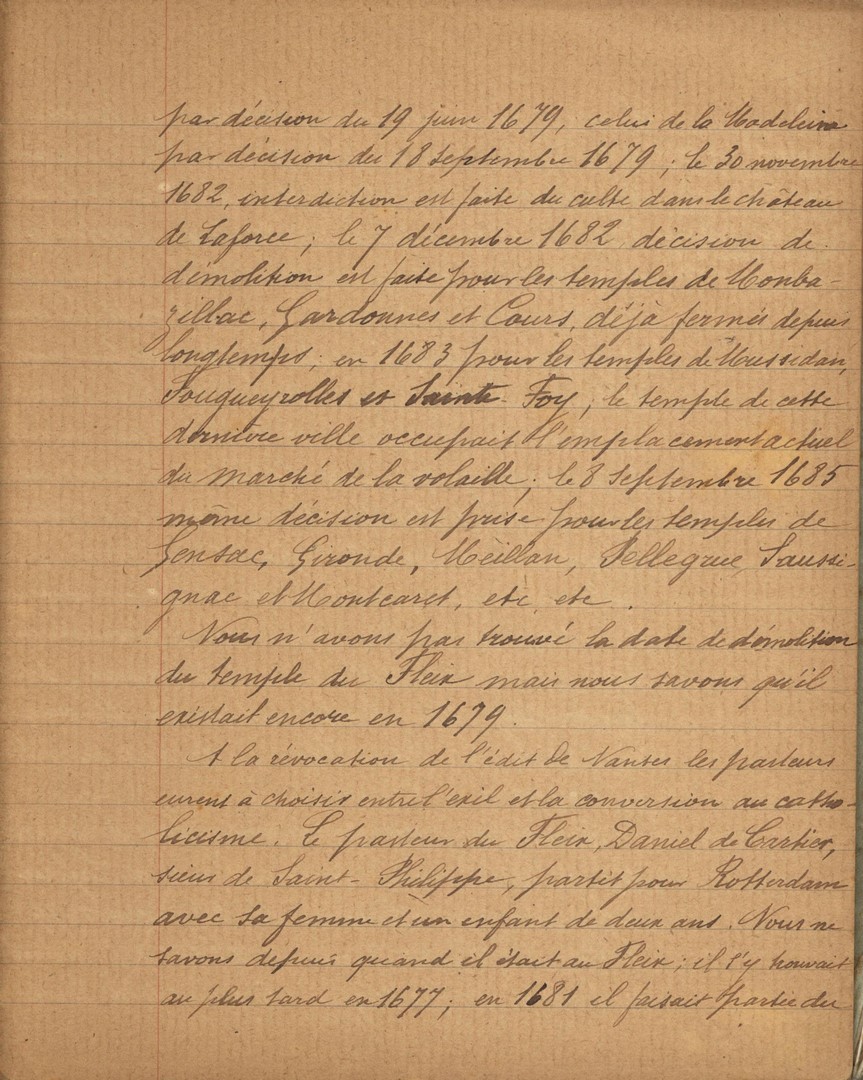 par décision du 19 juin 1679, celui de la Madeleine
par décision du 18 septembre 1679 ; le 30 novembre
1682, interdiction est faite du culte dans le château
de Laforce ; le 7 décembre 1682 décision de
démolition est faite pour les temples de Monba-
zillac, Gardonnes et Cours, déjà fermés depuis
longtemps ; en 1683 pour les temples de Mussidan,
Fougueyrolles et Sainte-Foy ; le temple de cette
dernière ville occupait l'emplacement actuel
du marché de la volaille ; le 8 septembre 1685
même décision est prise pour les temples de
Gensac, Gironde, Meillan, Pellegrue, Saussi-
gnac et Montcaret, etc, etc.
Nous n'avons pas trouvé la date de démolition
du temple du Fleix mais nous savons qu'il
existait encore en 1679.
A la révocation de l'édit de Nantes les pasteurs
eurent à choisir entre l'exil et la conversion au catho-
licisme. Le pasteur du Fleix, Daniel de Cartier,
sieur de Saint-Philippe, partit pour Rotterdam
avec sa femme et un enfant de deux ans. Nous ne
savons depuis quand il était au Fleix ; il s'y trouvait
au plus tard en 1677 ; en 1681 il faisait partie du